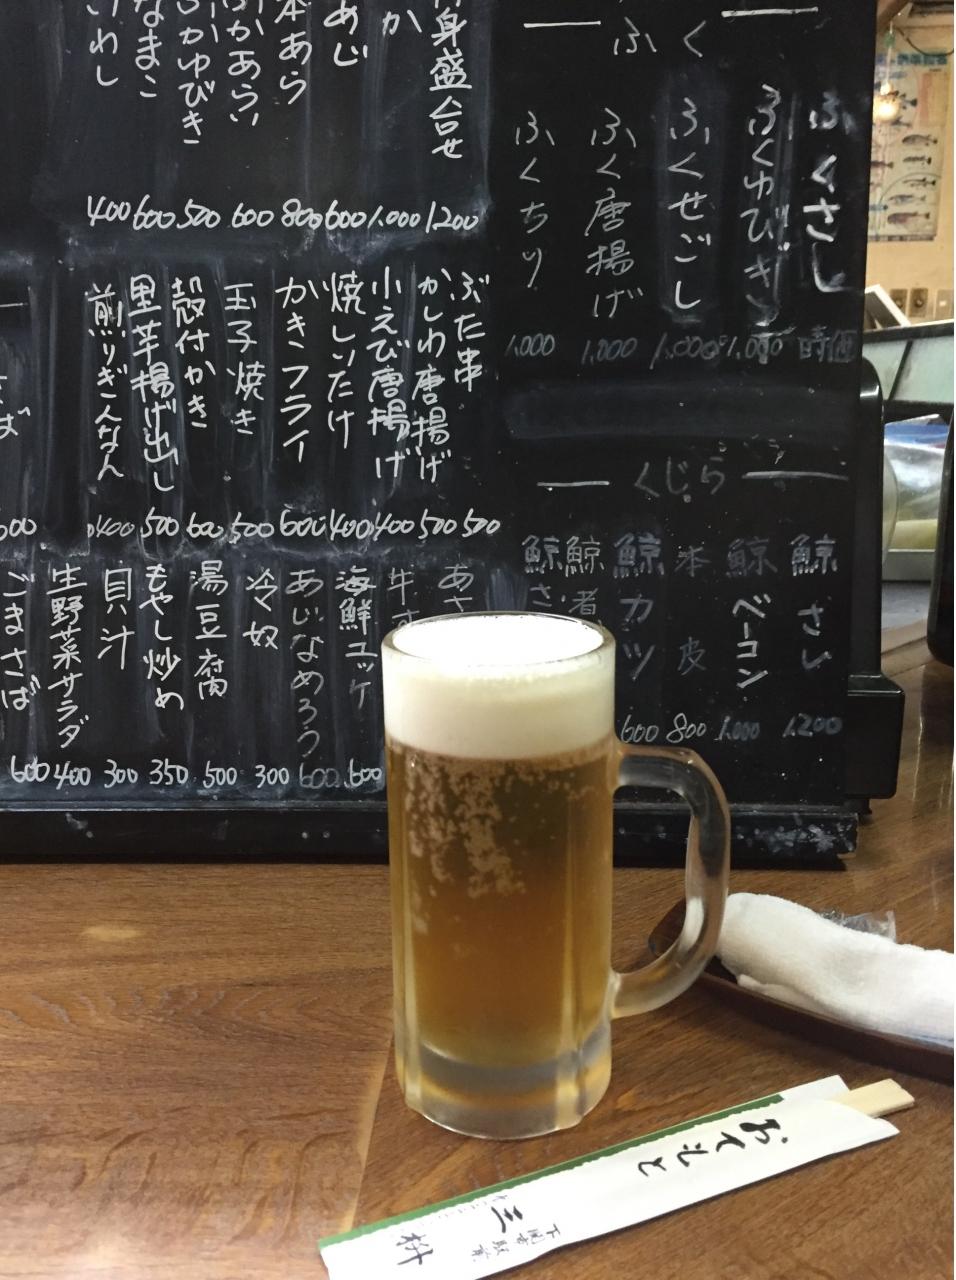 身盛合せ
か
あじ
本あら
ふかあらい
かゆびき
なまこ
いわし
1,200
1,000
600
800
600
500
600
400
ふく
ふくさし
ふくゆびき
ふくせごし
ふく唐揚げ
ふくちり
時価
1,000
1,000
1,000
1,000
ぶた串
かしわ唐揚げ
小えび唐揚げ
焼しいたけ
かきフライ
玉子焼き
殻付かき
里芋揚げ出し
煎りぎんなん
500
500
400
400
600
500
600
500
400
くじら
鯨さし
鯨ベーコン
本皮
鯨カツ
鯨煮
鯨さ
1,200
1,000
800
600
あさ
牛す
海鮮ユッケ
あじなめろう
冷奴
湯豆腐
もやし炒め
貝汁
生野菜サラダ
ごまさば
600
600
300
500
350
300
400
600
おてもと
下関寄駅前
三枡